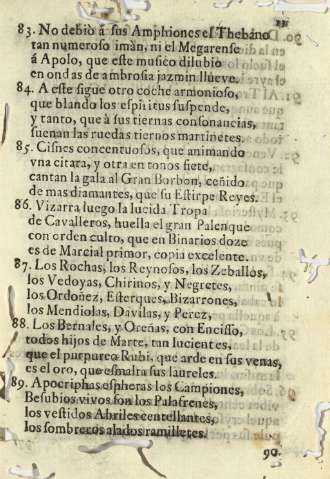 83. No debiò à sus Amphiones el Thebano
tan numeroso imàn, ni el Megarense
à Apolo, que este musico dilubio
en ondas de ambrosia jazmin llueve.
84. A este sigue otro coche armonioso,
que blando los espiritus suspende,
y tanto, que à sus tiernas consonancias,
suenan las ruedas tiernos martinetes.
85. Cisnes concentuosos, que animando
vna citara, y otra en tonos siete,
cantan la gala al Gran Borbon, ceñido
de mas diamantes, que su Estirpe Reyes.
86. Vizarra luego la lucida Tropa
de Cavalleros, huella el gran Palenque
con orden culto, que en Binarios doze
es de Marcial primor, copia excelente.
87. Los Rochas, los Reynosos, los Zeballos,
los Vedoyas, Chirinos, y Negretes,
los Ordoñez, Esterques, Bizarrones,
los Mendiolas, Davilas, y Perez,
88. Los Bernales, y Oreñas, con Encisso,
todos hijos de Marte, tan lucientes,
que el purpureo Rubi, que arde en sus venas,
es el oro, que esmalta sus laureles.
89. Apocriphas espheras los Campiones,
Besubios vivos son los Palafrenes,
los vestidos Abriles centellantes,
los sombreros alados ramilletes.
90.